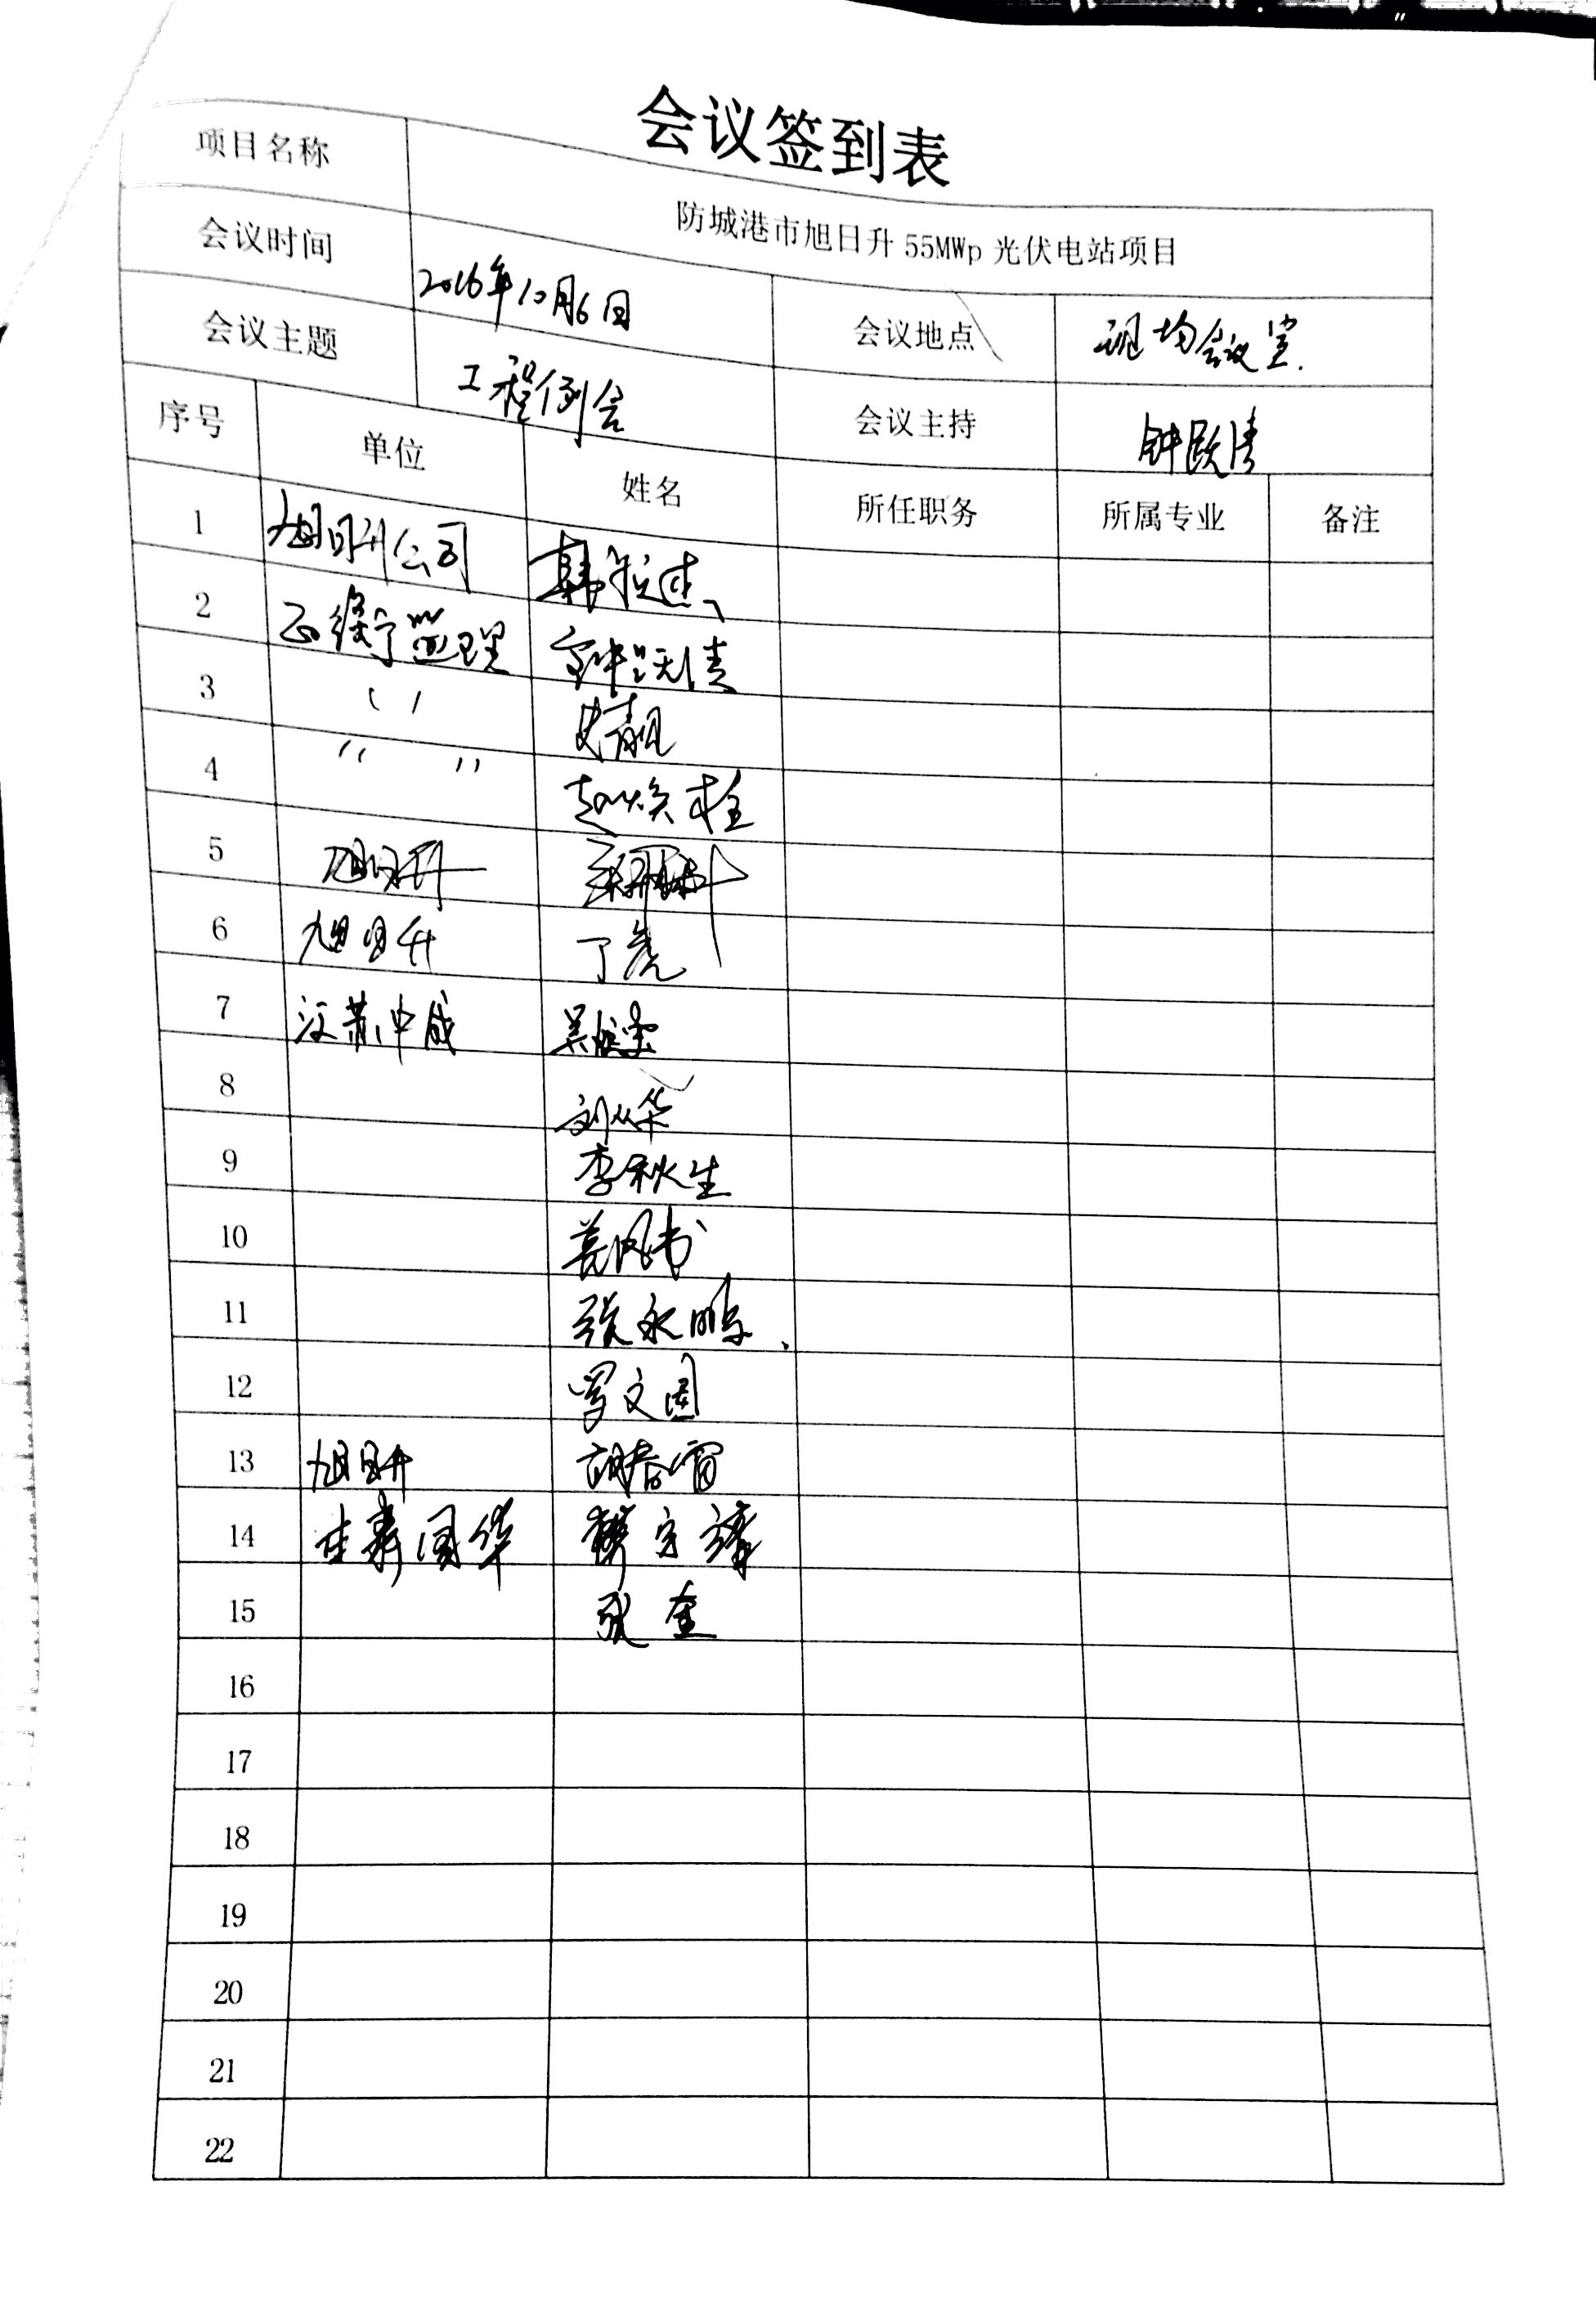 会议签到表
项目名称 防城港市旭日升55MWp光伏电站项目
会议时间 2016年10月6日 会议地点 现场会议室.
会议主题 工程例会 会议主持 钟跃清
序号 单位 姓名 所任职务 所属专业 备注
1 旭日升公司
2 监理 钟跃清
3 〃
4 〃 〃 赵焕栓
5 旭日升
6 旭日升 丁亮
7 江苏中成
8 刘从华
9 李秋生
10
11 张永鹏、
12 罗文国
13 旭日升 胡春雷
14 甘肃国华
15 张奎
16
17
18
19
20
21
22